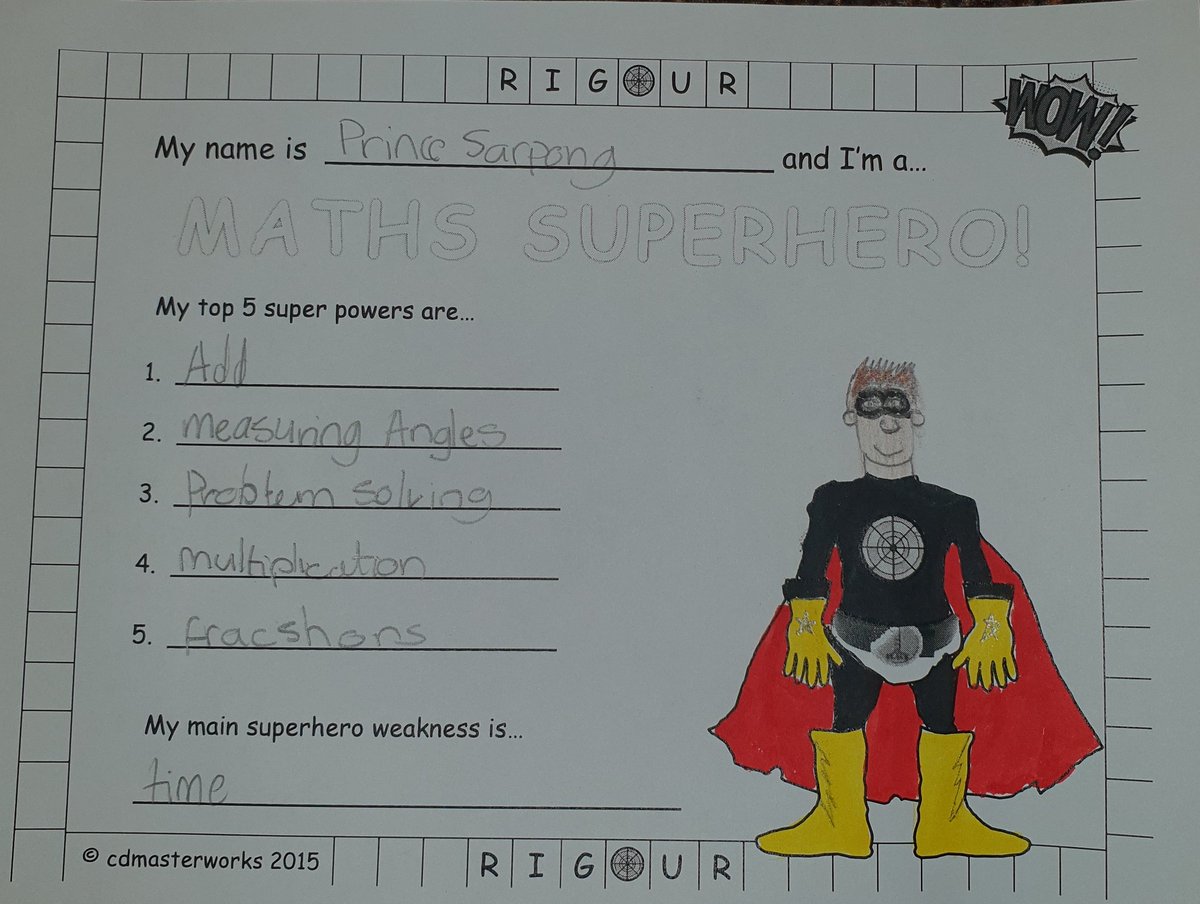 RIGOUR
WOW!
My name is Prince Sarpong and I'm a...
MATHS SUPERHERO!
My top 5 super powers are...
1. Add
2. measuring Angles
3. Problem solving
4. multiplication
5. fracshons
My main superhero weakness is...
time
© cdmasterworks 2015
RIGOUR